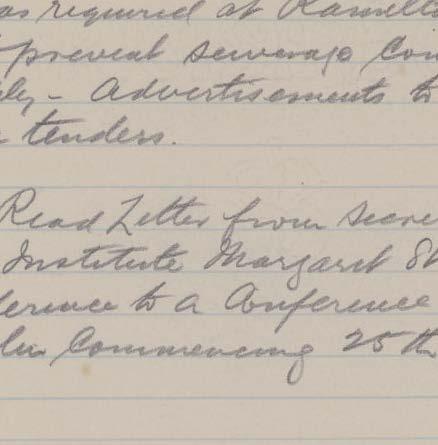 as required at
prevent sewerage Con
ly - Advertisements to
tenders.
Read Letter from Secre
Institute Margaret St
ference to a Conference
Commencing 25th